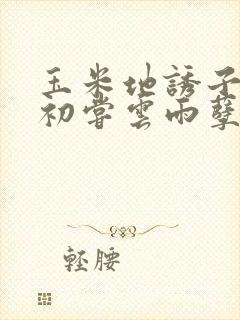 玉米地誘子
初嘗雲雨孽
輕腰